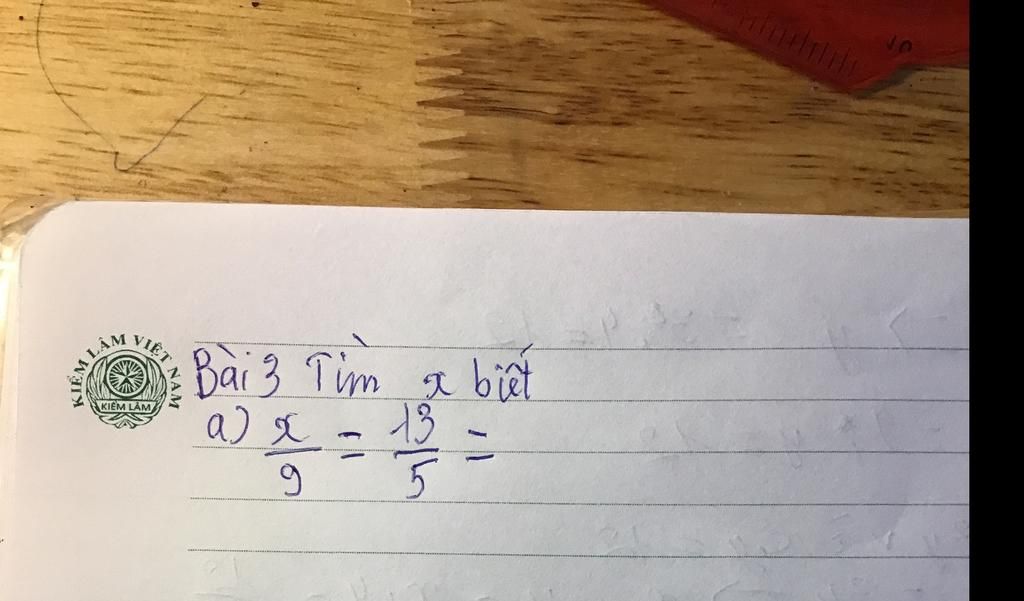 KIỂM LÂM VIỆT NAM
KIỂM LÂM
Bài 3 Tìm x biết
a) x/9 = 13/5 =